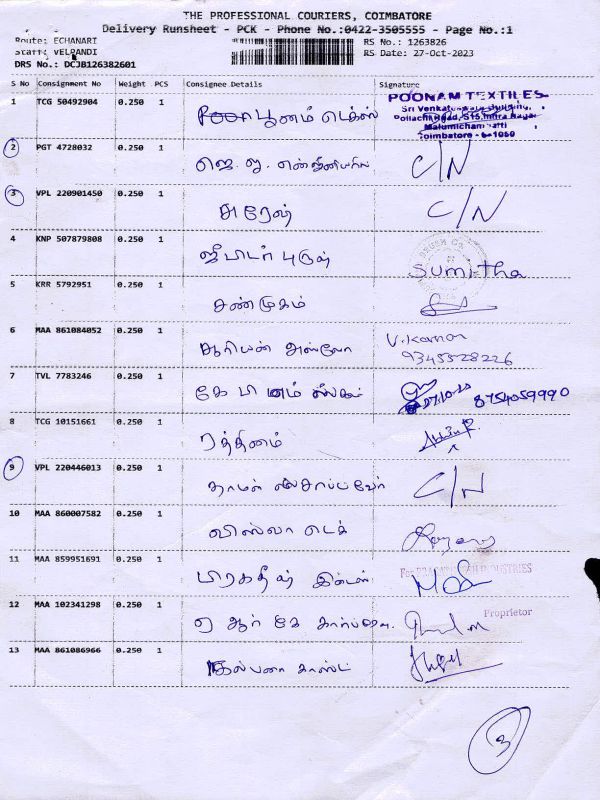 THE PROFESSIONAL COURIERS, COIMBATORE
Delivery Runsheet - PCK - Phone No.:0422-3505555 - Page No.:1
Route: ECHANARI RS No.: 1263826
Staff: VELPANDI RS Date: 27-Oct-2023
DRS No.: DCJB126382601
S No Consignment No Weight PCS Consignee Details Signature
1 TCG 50492904 0.250 1 பூனம் டெக்ஸ் POONAM TEXTILES
Sri Venkatesa Building,
Pollachi Road, Indra Nagar
Malumichampatti
Coimbatore -
2 PGT 4728032 0.250 1 ஜெ. யு. என்ஜினியரிங் C/N
3 VPL 220901450 0.250 1 சுரேஷ் C/N
4 KNP 507879808 0.250 1 Sumitha
5 KRR 5792951 0.250 1 சண்முகம்
6 MAA 861084052 0.250 1 ஆரியன் V. Kannan
9345528226
7 TVL 7783246 0.250 1 கே பி எம் 27.10.23 8754059990
8 TCG 10151661 0.250 1 ரத்தினம்
9 VPL 220446013 0.250 1 C/N
10 MAA 860007582 0.250 1 வில்லா டெக்
11 MAA 859951691 0.250 1 பிரகதீஷ் இன்டஸ் For INDUSTRIES
12 MAA 102341298 0.250 1 ஏ ஆர் கே Proprietor
13 MAA 861086966 0.250 1 கல்பனா காஸ்ட்
3